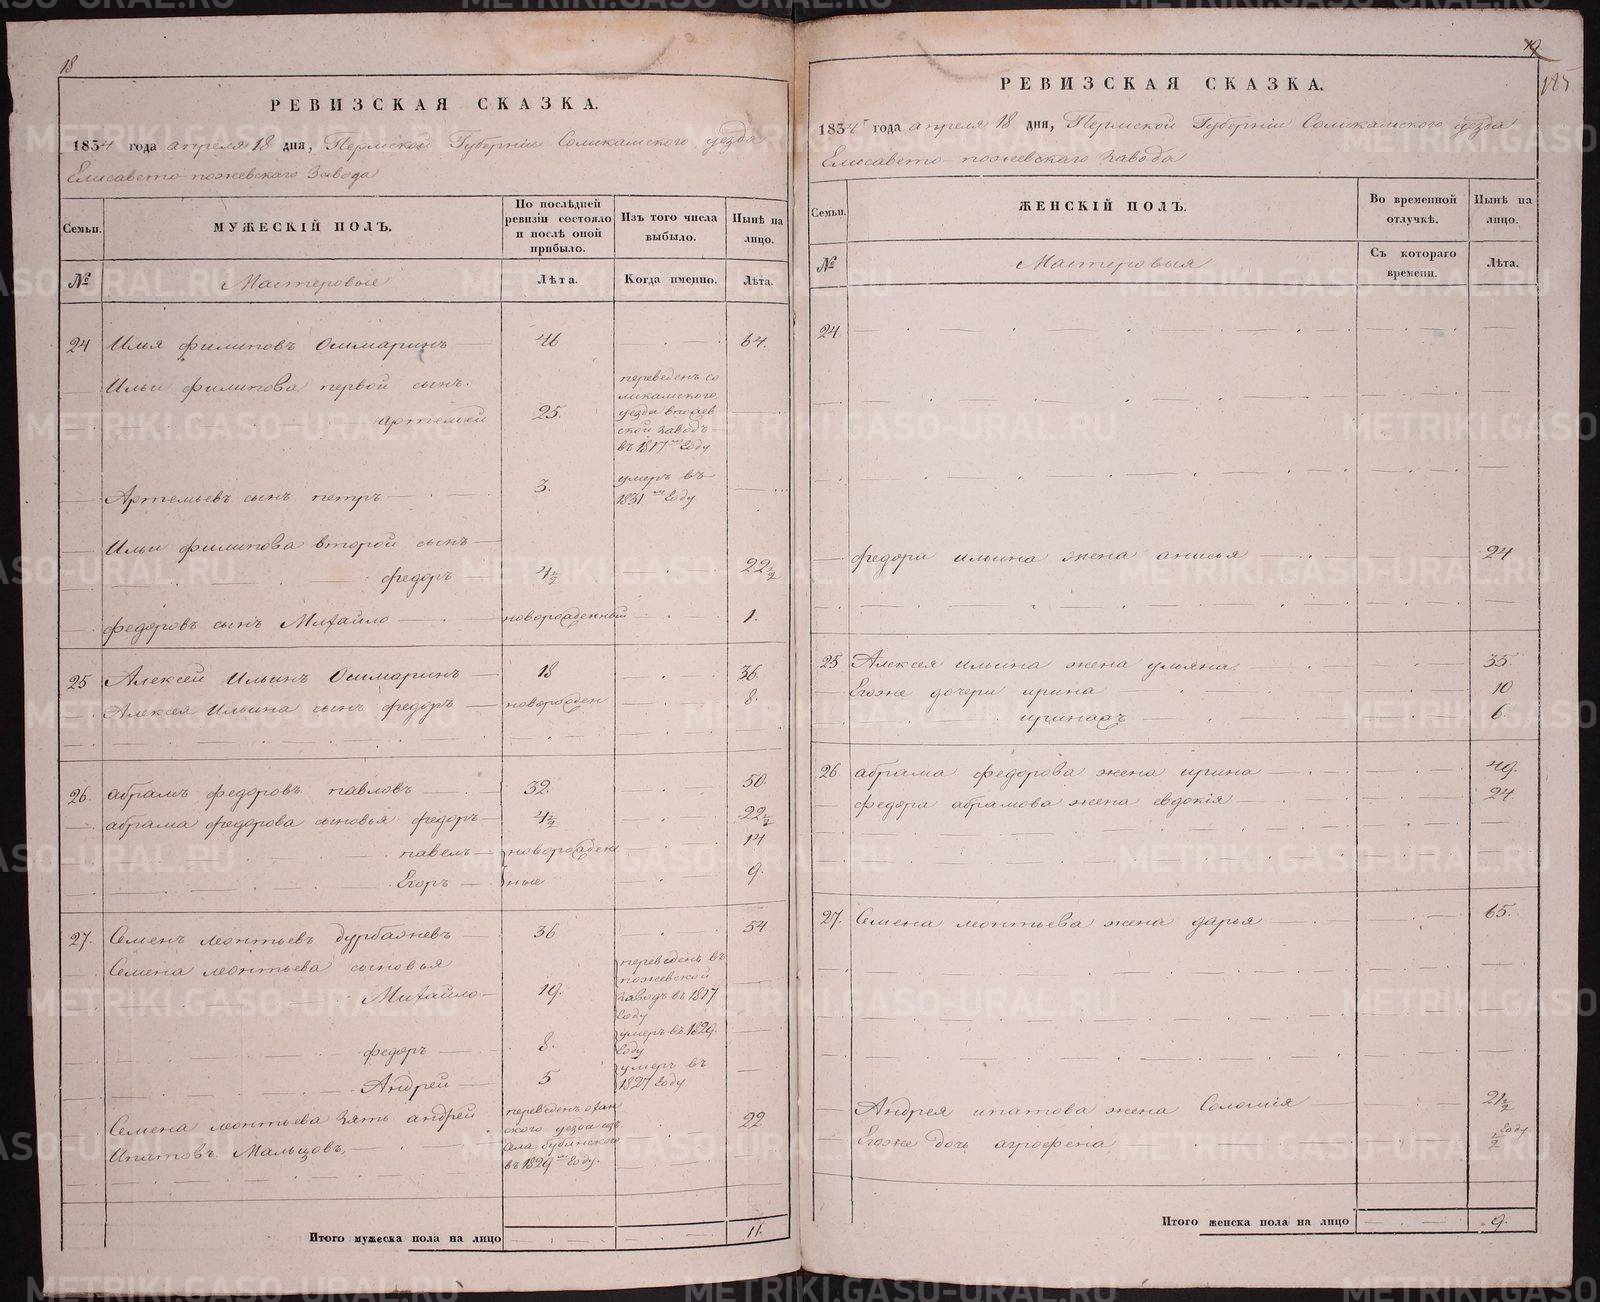 18
РЕВИЗСКАЯ СКАЗКА.
1834 года апреля 18 дня, Пермской Губернии Соликамского уезда
Елисавето-пожевскаго Завода
Семьи.
МУЖЕСКІЙ ПОЛЪ.
По послѣдней ревизіи состояло и послѣ оной прибыло.
Изъ того числа выбыло.
Нынѣ на лицо.
№
Мастеровые
Лѣта.
Когда именно.
Лѣта.
24 Илья филиповъ 46 64.
Ильи филипова первой сынъ.
артемей 25. переведенъ со
ликамского
уезда
ской заводъ
въ 1817 году
Артемьевъ сынъ петръ 3. умеръ въ
1831 году
Ильи филипова второй сынъ
федоръ 4½ 22½
федоровъ сынъ Михайло новорожденный 1.
25 Алексей Ильинъ 18 36.
Алексея Ильина сынъ федоръ новорожден 8.
26. абрамъ федоровъ павловъ 32. 50.
абрама федорова сыновья федоръ 4½ 22½
павелъ новорожден 14
Егоръ ные 9.
27. Семенъ леонтьевъ дурбажевъ 36 54
Семена леонтьева сыновья
Михайло 19. переведенъ въ
пожевской
заводъ въ 1817
году
федоръ 8. умеръ въ 1829.
году
Андрей 5 умеръ въ
1827 году
Семена леонтьева зять андрей переведенъ охан 22
ского уезда изъ
Ипатовъ Мальцовъ,
въ 1829 году.
Итого мужеска пола на лицо 11.
19
185
РЕВИЗСКАЯ СКАЗКА.
1834 года апреля 18 дня, Пермской Губерніи Соликамского уезда
Елисавето-пожевскаго Завода
Семьи.
ЖЕНСКІЙ ПОЛЪ.
Во временной отлучкѣ.
Нынѣ на лицо.
№
Мастеровыя
Съ котораго времени.
Лѣта.
24.
федора ильина жена анисья 24
25 Алексея ильина жена ульяна. 35.
Егоже дочери ирина 10
иринаръ 6.
26. абрама федорова жена ирина 49.
федора абрамова жена евдокія 24.
27. Семена леонтьева жена дарья 65.
Андрея ипатова жена Соломія 21½
Егоже дочь агрофена ½ году
Итого женска пола на лицо 9.
METRIKI.GASO-URAL.RU